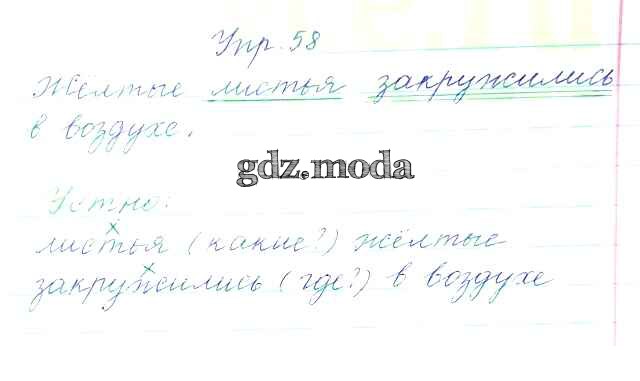 Упр. 58
Жёлтые листья закружились
в воздухе.
gdz.moda
Устно:
х
листья (какие?) жёлтые
х
закружились (где?) в воздухе